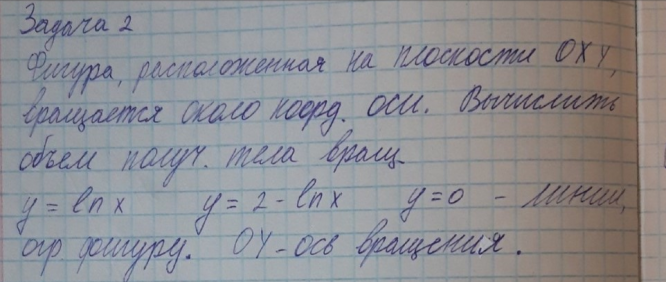 Задача 2
Фигура, расположенная на плоскости OXY,
вращается около коорд. оси. Вычислить
объем получ. тела вращ.
y = ln x y = 2 - ln x y = 0 - линии,
огр фигуру. OY - ось вращения.